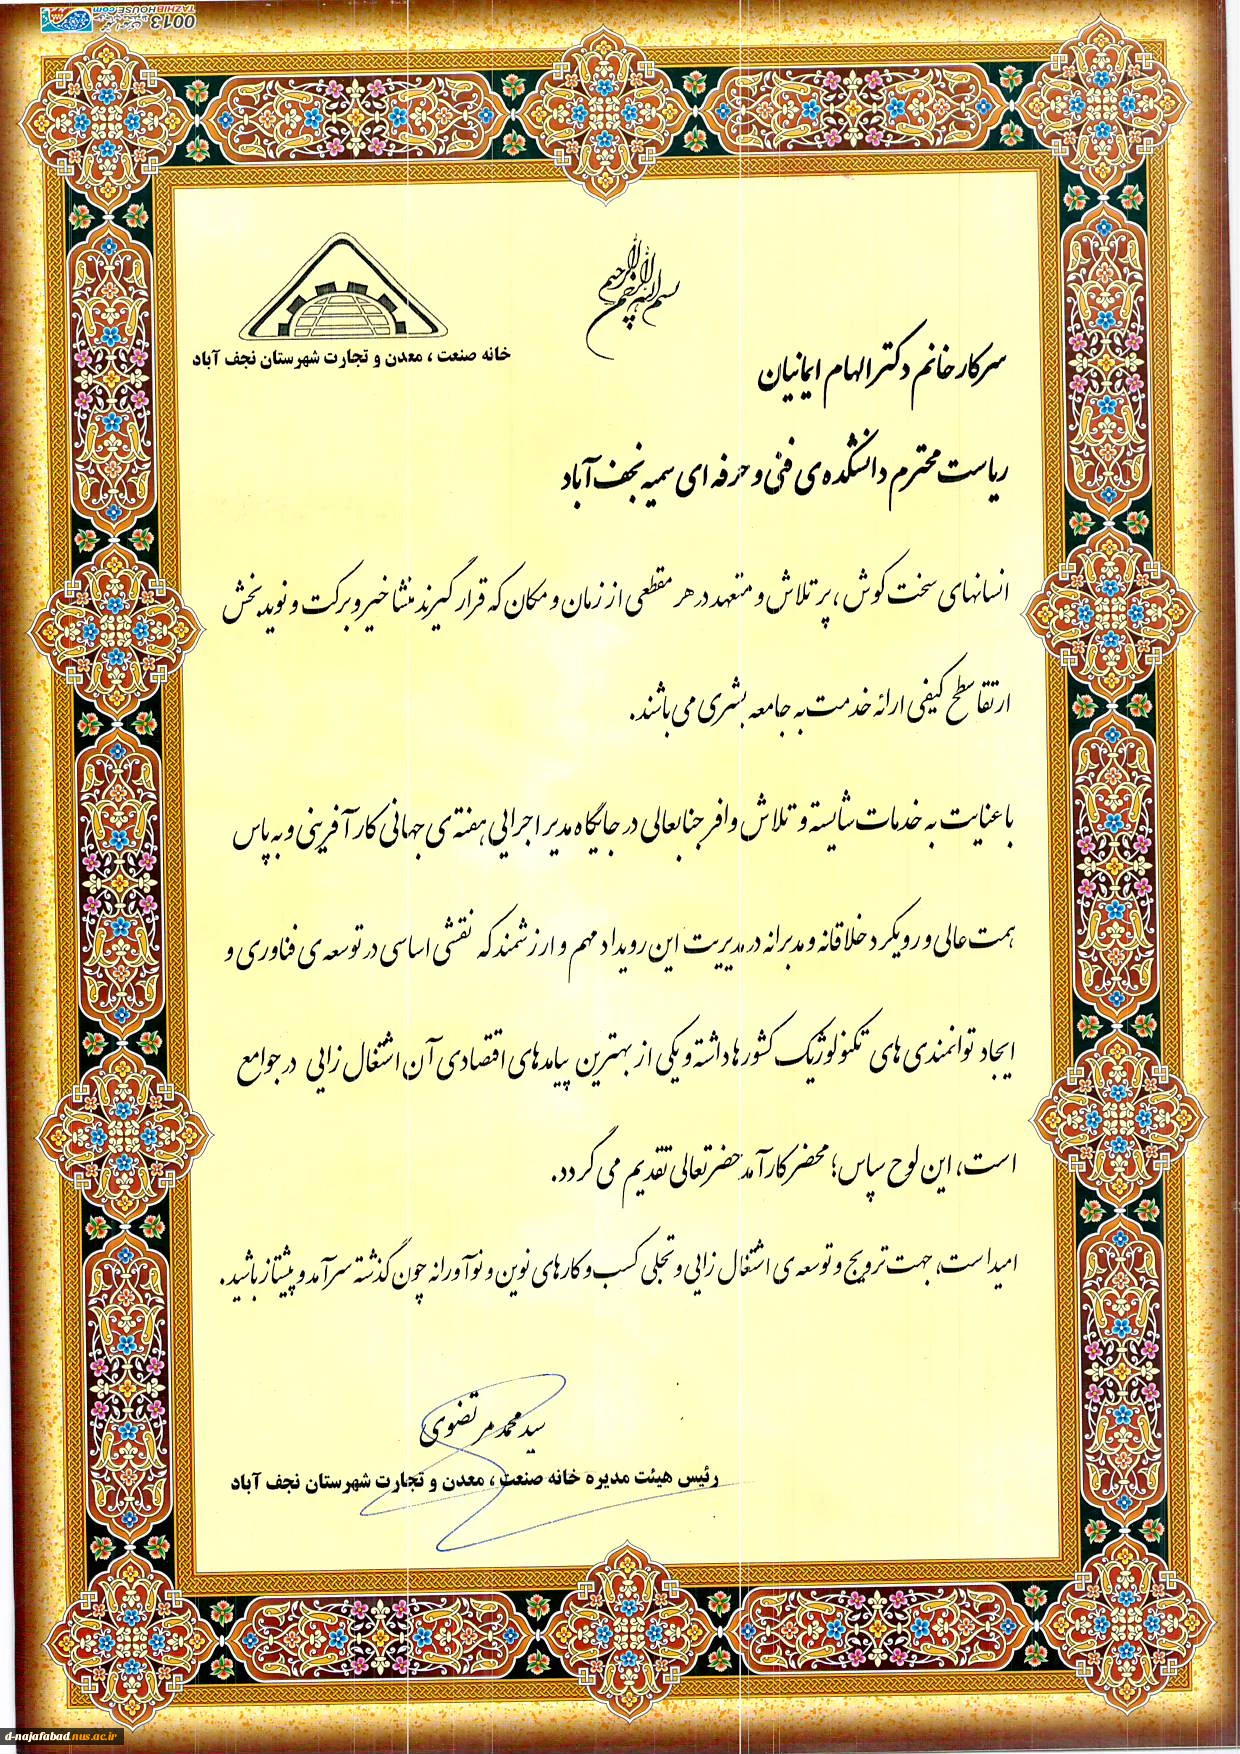 TAZHIBHOUSE.com 0013
بسم الله الرحمن الرحیم
خانه صنعت ، معدن و تجارت شهرستان نجف آباد
سرکار خانم دکتر الهام ایمانیان
ریاست محترم دانشکده ی فنی و حرفه ای سمیه نجف آباد
انسانهای سخت کوش ، پر تلاش و متعهد در هر مقطعی از زمان و مکان که قرار گیرند منشا خیر و برکت و نوید بخش
ارتقا سطح کیفی ارائه خدمت به جامعه بشری می باشند.
با عنایت به خدمات شایسته و تلاش وافر جنابعالی در جایگاه مدیر اجرایی هفته ی جهانی کار آفرینی و به پاس
همت عالی و رویکرد خلاقانه و مدبرانه در مدیریت این رویداد مهم و ارزشمند که نقشی اساسی در توسعه ی فناوری و
ایجاد توانمندی های تکنولوژیک کشورها داشته و یکی از بهترین پیامدهای اقتصادی آن اشتغال زایی در جوامع
است، این لوح سپاس؛ محضر کارآمد حضرتعالی تقدیم می گردد.
امید است، جهت ترویج و توسعه ی اشتغال زایی و تجلی کسب و کارهای نوین و نوآورانه چون گذشته سرآمد و پیشتاز باشید.
سید محمد مرتضوی
رئیس هیئت مدیره خانه صنعت ، معدن و تجارت شهرستان نجف آباد
d-najafabad.nus.ac.ir